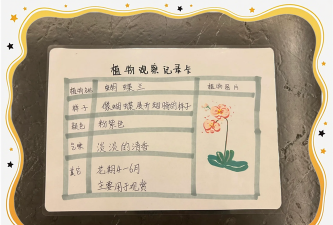 植物观察记录卡
植物名 蝴蝶兰 植物图片
样子 像蝴蝶展开翅膀的样子
颜色 粉紫色
气味 淡淡的清香
其它 花期4-6月
主要用于观赏